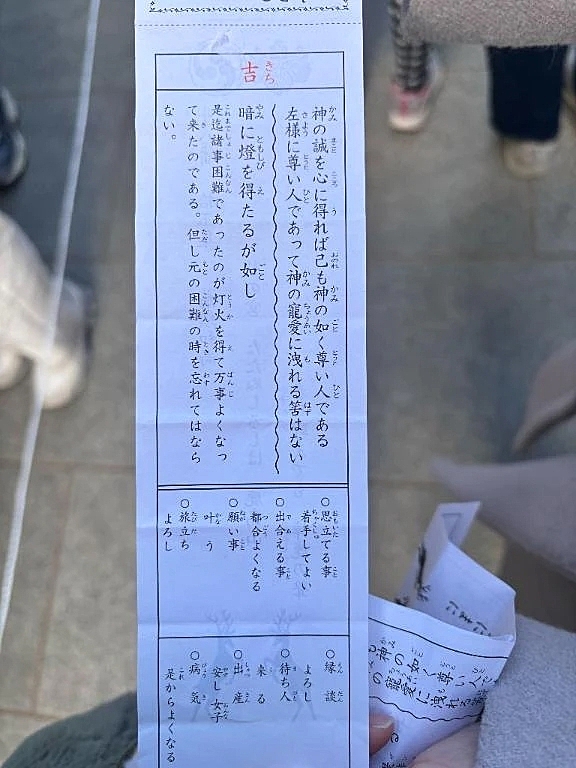 吉
神の誠を心に得れば己も神の如く尊い人である
左様に尊い人であって神の寵愛に洩れる筈はない
暗に燈を得たるが如し
是迄諸事困難であったのが灯火を得て万事よくなっ
て来たのである。但し元の困難の時を忘れてはなら
ない。
○思立てる事
着手してよい
○出合える事
都合よくなる
○願い事
叶う
○旅立ち
よろし
○縁談
よろし
○待ち人
来る
○出産
安し女子
○病気
是からよくなる
も神の如く尊い人で
の寵愛に洩れる筈